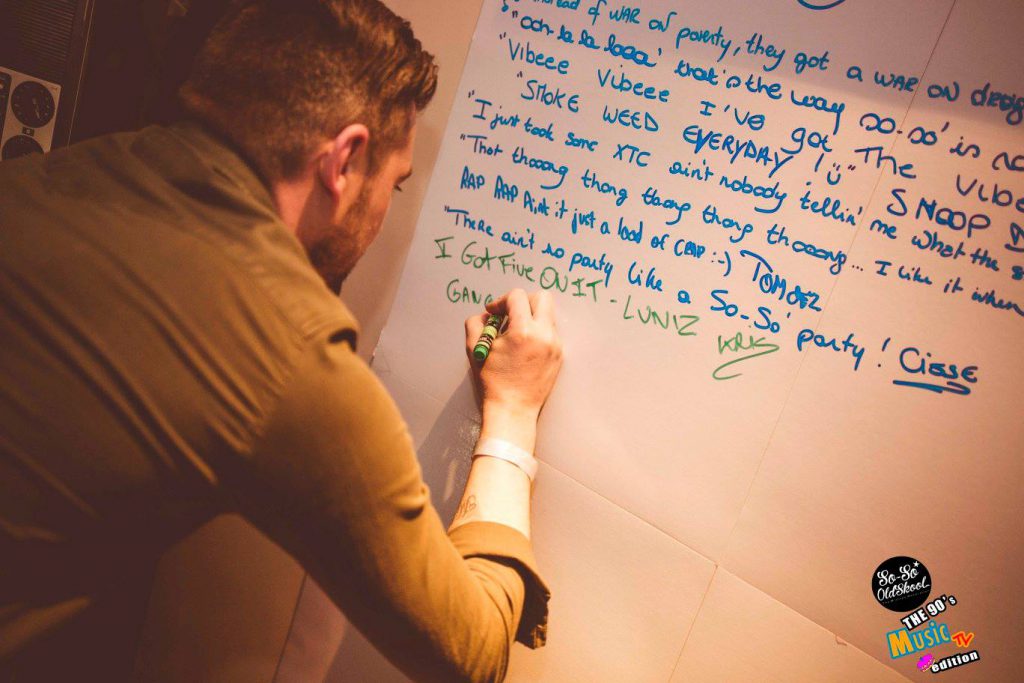 instead of WAR ON poverty, they got a WAR ON drugs
"ooh-la la laaa' that's the way so-so' is
"Vibeee Vibeee I've got The Vibe
"SMOKE WEED EVERYDAY! SNOOP D
"I just took some XTC ain't nobody tellin' me what the
"That thooong thong thong thong thooong... I like it when
RAP RAP Ain't it just a load of CRAP :-) TOM
"There ain't no party like a So-So' party! Cisse
I Got Five ON IT - LUNIZ KRK
GANG
So-So
OldSkool
THE 90's
Music TV
edition